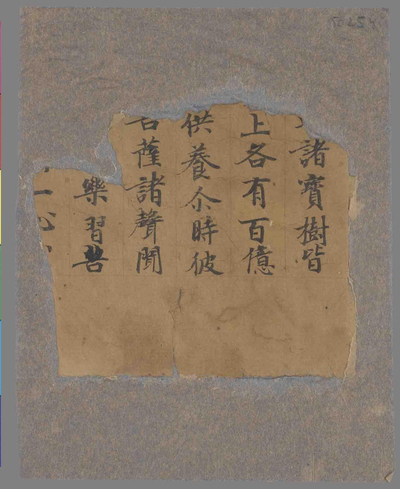 諸寳樹皆
上各有百億
供養尒時彼
菩薩諸聲聞
樂習苦
一心